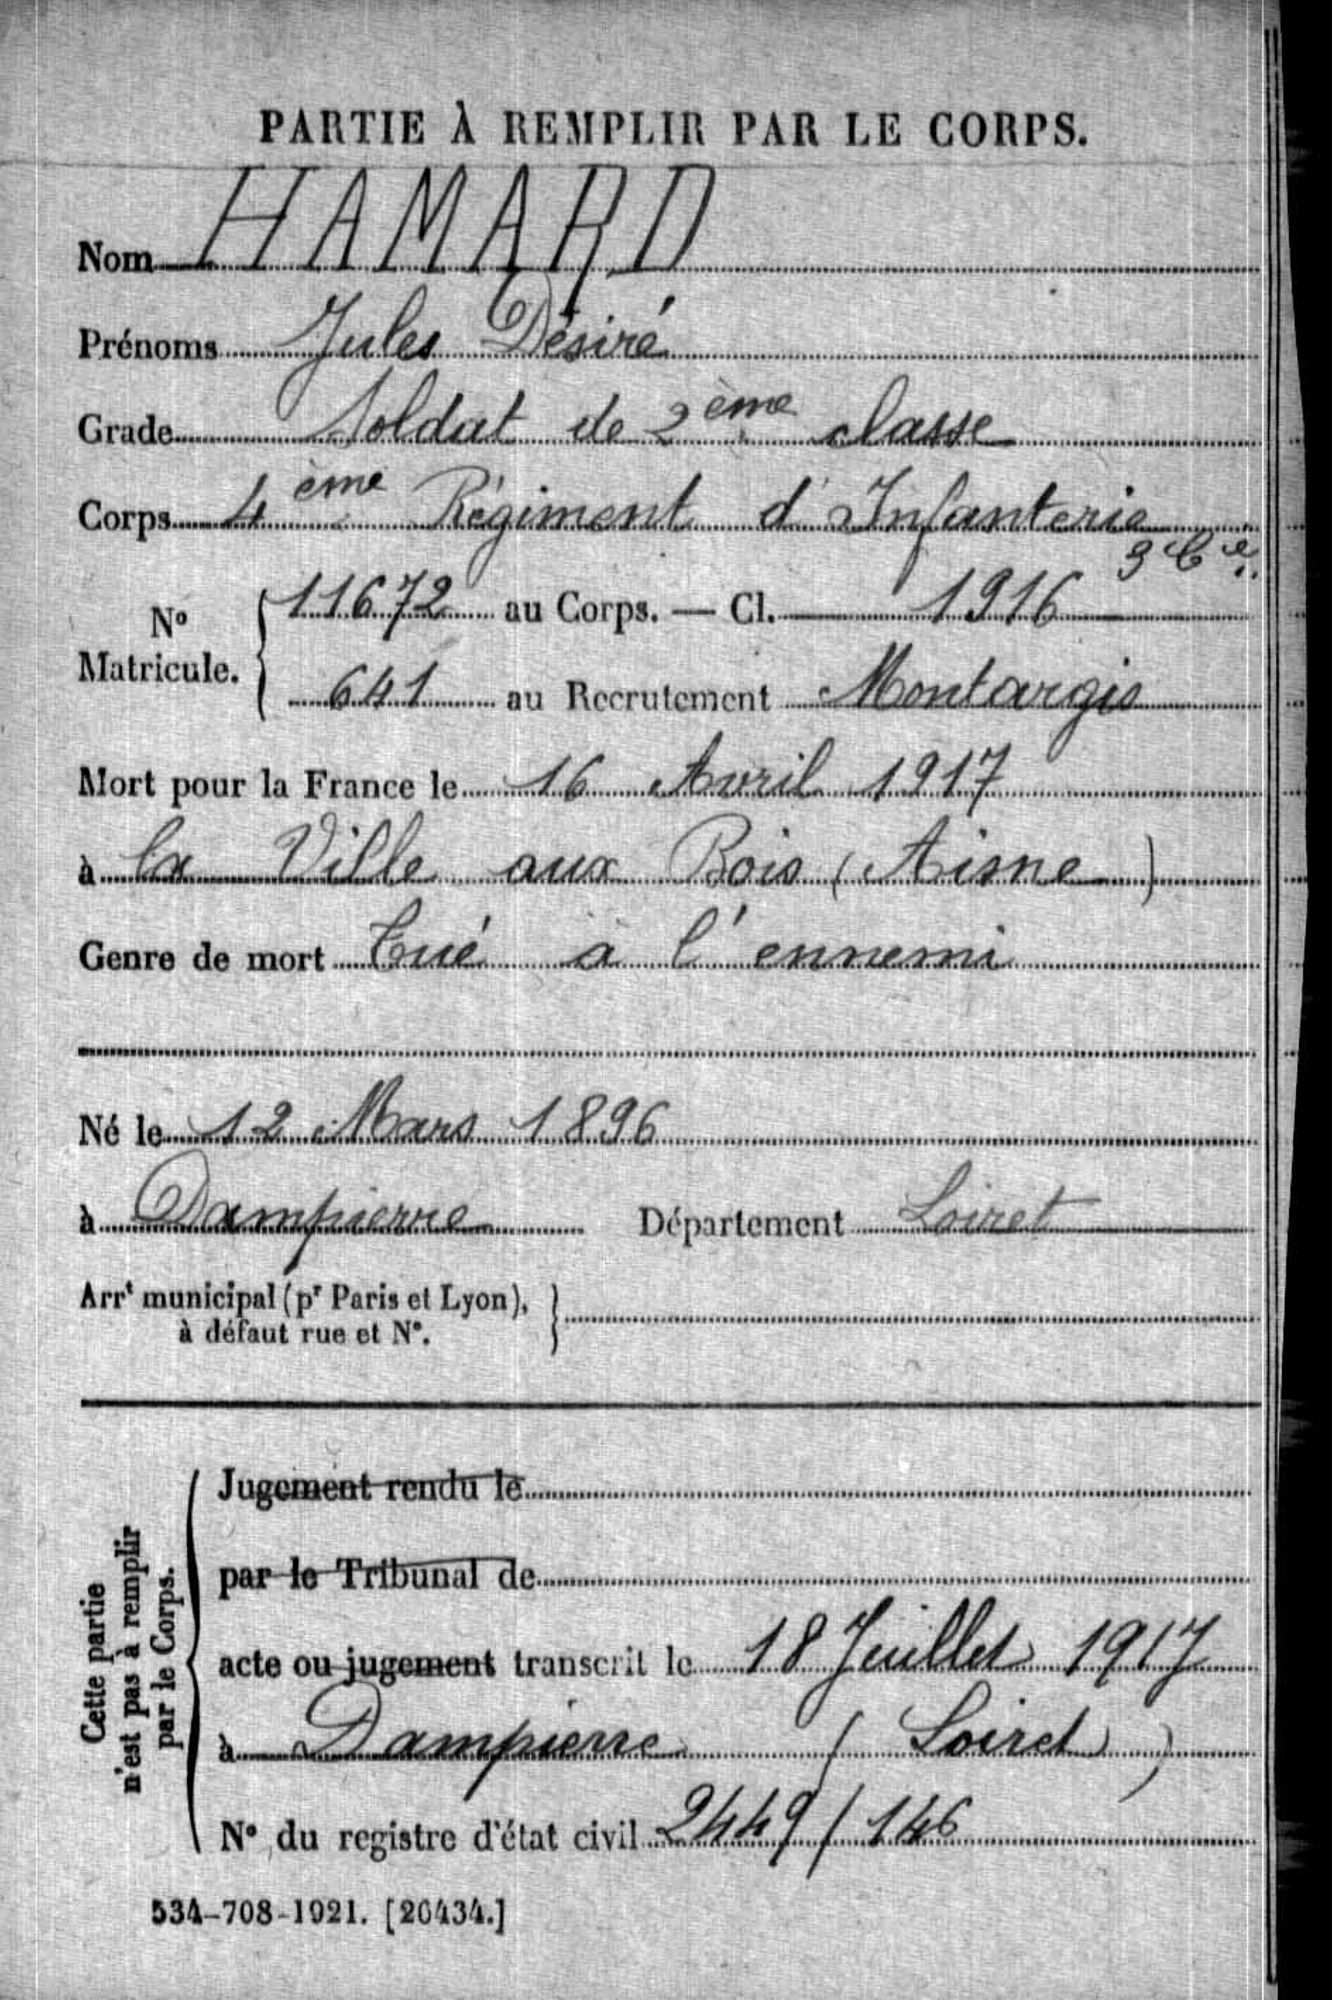 PARTIE À REMPLIR PAR LE CORPS.
Nom HAMARD
Prénoms Jules Désiré
Grade Soldat de 2ème classe
Corps 4ème Régiment d'Infanterie
3 Cie
N° Matricule. { 11672 au Corps. — Cl. 1916
641 au Recrutement Montargis
Mort pour la France le 16 Avril 1917
à la Ville aux Bois (Aisne)
Genre de mort Tué à l'ennemi
Né le 12 Mars 1896
à Dampierre Département Loiret
Arrt municipal (pr Paris et Lyon), }
à défaut rue et N°.
Cette partie
n'est pas à remplir
par le Corps.
Jugement rendu le
par le Tribunal de
acte ou jugement transcrit le 18 Juillet 1917
à Dampierre (Loiret)
N° du registre d'état civil 2449/146
534-708-1921. [26434.]